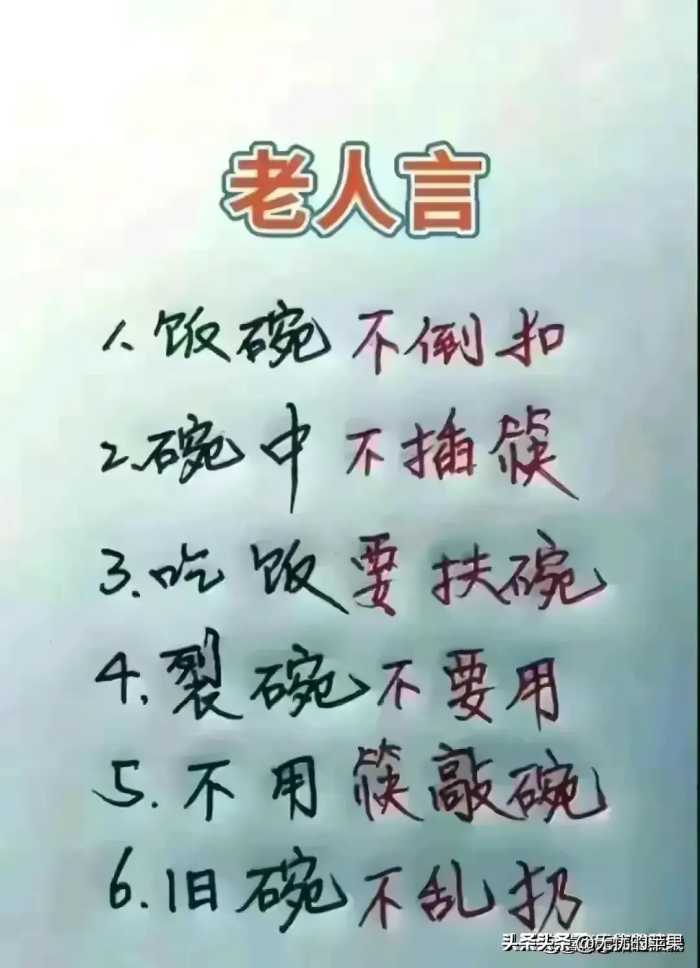 老人言
1、饭碗不倒扣
2、碗中不插筷
3.吃饭要扶碗
4.裂碗不要用
5.不用筷敲碗
6.旧碗不乱扔
头条 @无忧的苹果